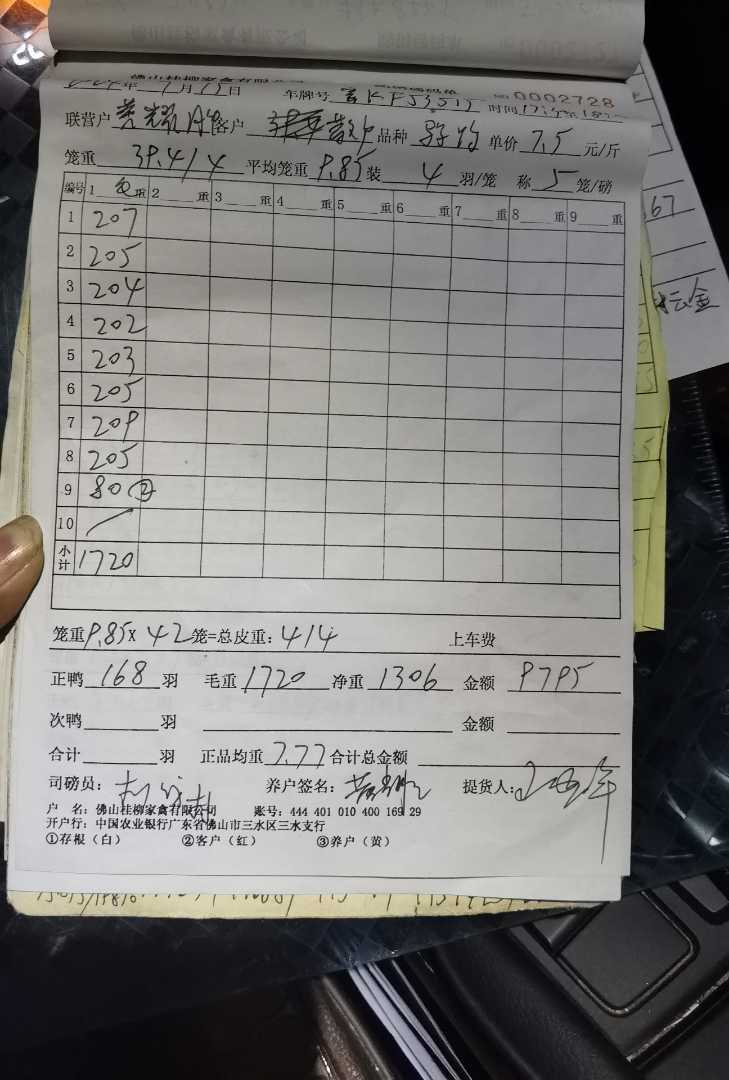 佛山桂柳家禽有限公司
年 1月15日 车牌号 NO 0002728
时间17:
联营户 黄耀 客户 散户 品种 单价 7.5 元/斤
笼重 39.4/4 平均笼重 9.85 装 4 羽/笼 称 5 笼/磅
编号 1 毛重 2 重 3 重 4 重 5 重 6 重 7 重 8 重 9 重
1 207
2 205
3 204
4 202
5 203
6 205
7 209
8 205
9 80 ②
10 /
小计 1720
笼重9.85×42笼=总皮重:414 上车费
正鸭168羽 毛重1720 净重1306 金额 9795
次鸭 羽 金额
合计 羽 正品均重7.77合计总金额
司磅员: 养户签名: 提货人:
户 名: 佛山桂柳家禽有限公司 账号: 444 401 010 400 169 29
开户行: 中国农业银行广东省佛山市三水区三水支行
①存根(白) ②客户(红) ③养户(黄)